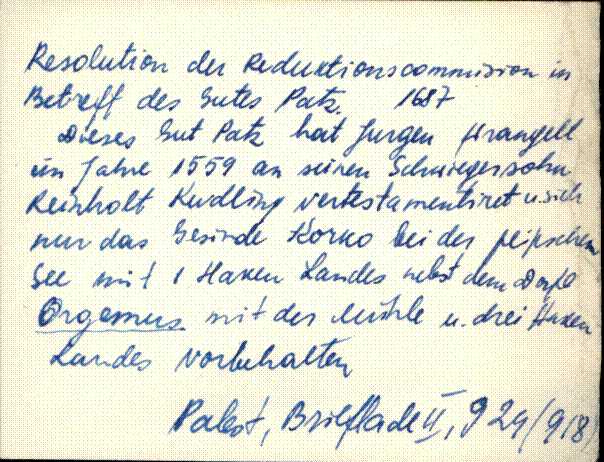 Resolution der Reduktionscommission in
Betreff des Gutes Patz. 1687
Dieses Gut Patz hat Jurgen Wrangell
im Jahre 1559 an seinen Schwiegersohn
Reinholt Kudling vertestamentiret u. sich
nur das Gesinde Korko bei der peipschen
See mit 1 Haken Landes nebst dem Dorfe
Orgemus mit der Mühle u. drei Haken
Landes vorbehalten
Pabst, Brieflade II, 929 (918)